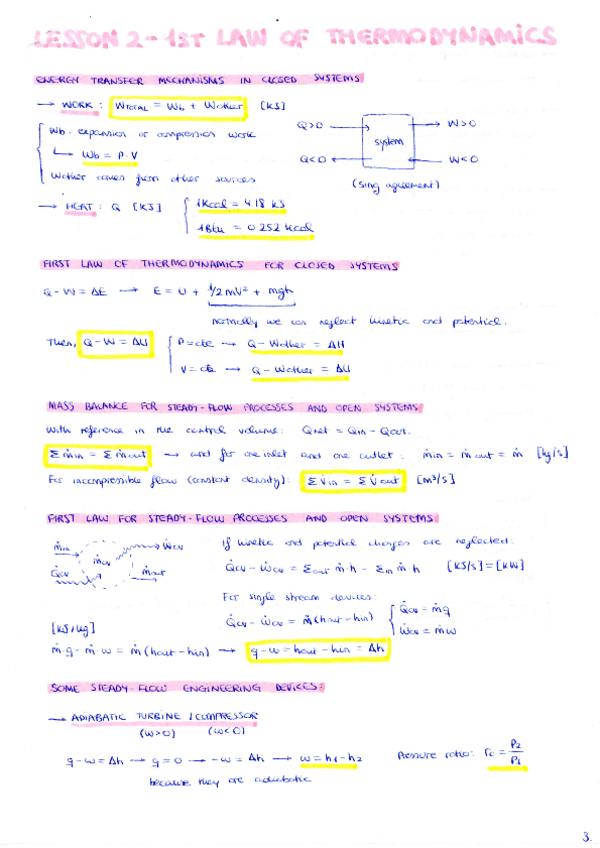 LESSON 2 - 1ST LAW OF THERMODYNAMICS
ENERGY TRANSFER MECHANISMS IN CLOSED SYSTEMS
→ WORK: W_TOTAL = Wb + Wother [KJ]
Wb. expansion or compression work
↳ Wb = P·V
Wother comes from other sources
Q>0 → system → W>0
Q<0 ← ← W<0
(sing agreement)
→ HEAT: Q [KJ] { 1Kcal = 4.18 KJ
1Btu = 0.252 Kcal
FIRST LAW OF THERMODYNAMICS FOR CLOSED SYSTEMS
Q - W = ΔE → E = U + 1/2 mV² + mgh
normally we can neglect kinetic and potential.
Then, Q - W = ΔU { P = cte → Q - Wother = ΔH
V = cte → Q - Wother = ΔU
MASS BALANCE FOR STEADY-FLOW PROCESSES AND OPEN SYSTEMS
With reference in the control volume: Qnet = Qin - Qout.
Σ ṁin = Σ ṁout → and for one inlet and one outlet: ṁin = ṁout = ṁ [kg/s]
For incompressible flow (constant density): Σ V̇in = Σ V̇out [m³/s]
FIRST LAW FOR STEADY-FLOW PROCESSES AND OPEN SYSTEMS
ṁin Ẇcv
ṁcv
Q̇cv ṁout
If kinetic and potential changes are neglected:
Q̇cv - Ẇcv = Σout ṁ h - Σin ṁ h [KJ/s] = [KW]
For single stream devices:
Q̇cv - Ẇcv = ṁ (hout - hin) { Q̇cv = ṁq
Ẇcv = ṁw
[KJ/kg]
ṁ·q - ṁ·w = ṁ (hout - hin) → q - w = hout - hin = Δh
SOME STEADY-FLOW ENGINEERING DEVICES:
→ ADIABATIC TURBINE / COMPRESSOR
(W>0) (W<0)
q - w = Δh → q = 0 → -w = Δh → w = h1 - h2
because they are adiabatic
Pressure ratio: rc = P2/P1
3.